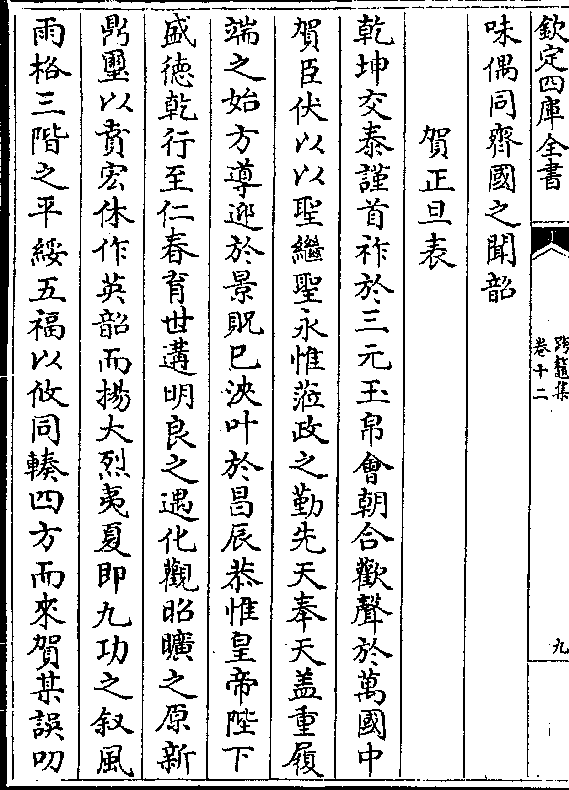 欽定四庫全書
跨鼇集
卷十二
九
味偶同齊國之聞韶
賀正旦表
乾坤交泰謹首祚於三元玉帛會朝合歡聲於萬國中
賀臣伏以以聖繼聖永惟蒞政之勤先天奉天盖重履
端之始方導迎於景貺已浹叶於昌辰恭惟皇帝陛下
盛德乾行至仁春育世遘明良之遇化觀昭曠之原新
鼎璽以賁宏休作英韶而揚大烈夷夏即九功之叙風
雨格三階之平綏五福以攸同輳四方而來賀某誤叨